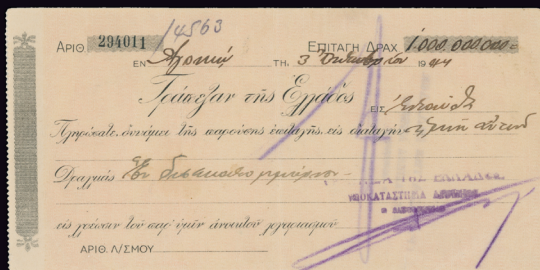 14563
ΑΡΙΘ. 294011 ΕΠΙΤΑΓΗ ΔΡΑΧ. 1.000.000.000=
ΕΝ ΤΗ, 3 Οκτωβρίου 1944
Τράπεζαν τῆς Ἑλλάδος ΕΙΣ
Πληρώσατε, δυνάμει τῆς παρούσης ἐπιταγῆς, εἰς διαταγὴν
Δραχμὰς Ἓν δισεκατομμύριον
ΤΗΣ ΕΛΛΑΔΟΣ
ΥΠΟΚΑΤΑΣΤΗΜΑ
εἰς χρέωσιν τοῦ παρ' ὑμῖν ἀνοικτοῦ λογαριασμοῦ.
ΑΡΙΘ. Λ/ΣΜΟΥ